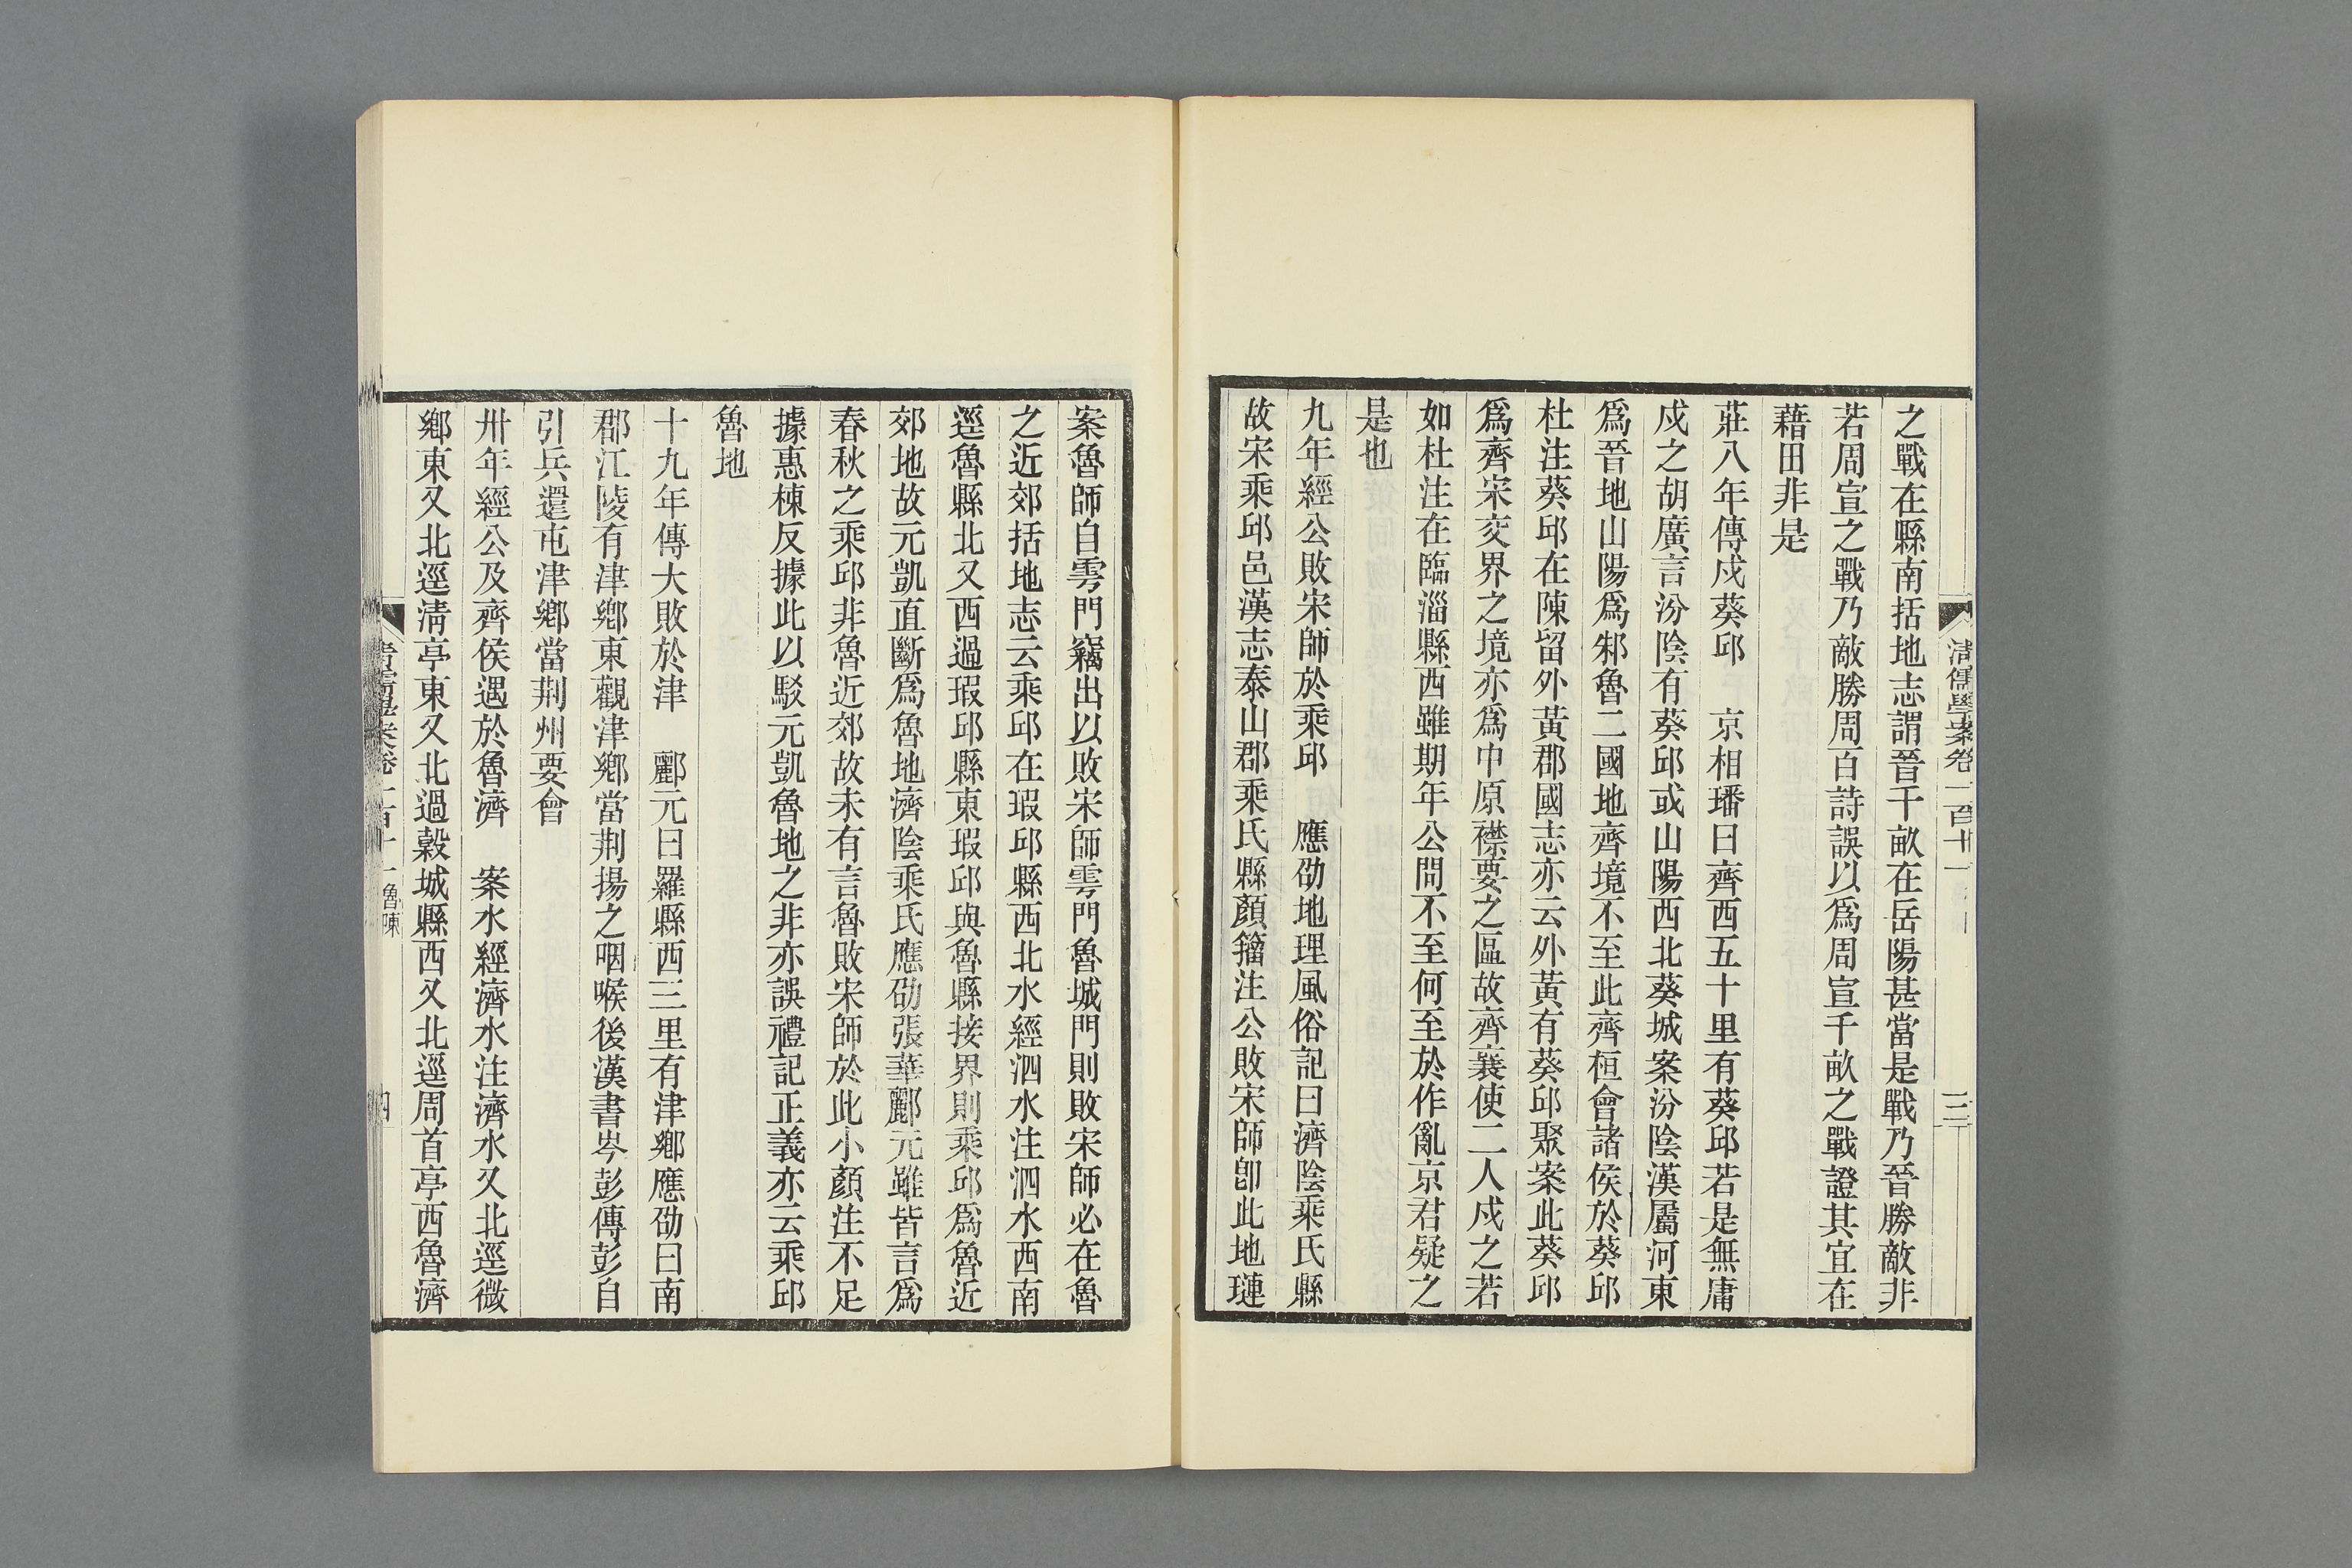 清儒學案卷一百十一
三
之戰在縣南括地志謂晉千畝在岳陽甚當是戰乃晉勝敵非
若周宣之戰乃敵勝周百詩誤以爲周宣千畝之戰證其宜在
藉田非是
莊八年傳戍葵邱　京相璠曰齊西五十里有葵邱若是無庸
戍之胡廣言汾陰有葵邱或山陽西北葵城案汾陰漢屬河東
爲晉地山陽爲邾魯二國地齊境不至此齊桓會諸侯於葵邱
杜注葵邱在陳留外黃郡國志亦云外黃有葵邱聚案此葵邱
爲齊宋交界之境亦爲中原襟要之區故齊襄使二人戍之若
如杜注在臨淄縣西雖期年公問不至何至於作亂京君疑之
是也
九年經公敗宋師於乘邱　應劭地理風俗記曰濟陰乘氏縣
故宋乘邱邑漢志泰山郡乘氏縣顏籀注公敗宋師卽此地璉
案魯師自雩門竊出以敗宋師雩門魯城門則敗宋師必在魯
之近郊括地志云乘邱在瑕邱縣西北水經泗水注泗水西南
逕魯縣北又西過瑕邱縣東瑕邱與魯縣接界則乘邱爲魯近
郊地故元凱直斷爲魯地濟陰乘氏應劭張華酈元雖皆言爲
春秋之乘邱非魯近郊故未有言魯敗宋師於此小顏注不足
據惠棟反據此以駁元凱魯地之非亦誤禮記正義亦云乘邱
魯地
十九年傳大敗於津　酈元曰羅縣西三里有津鄉應劭曰南
郡江陵有津鄉東觀津鄉當荆揚之咽喉後漢書岑彭傳彭自
引兵還屯津鄉當荆州要會
卅年經公及齊侯遇於魯濟　案水經濟水注濟水又北逕微
鄉東又北逕淸亭東又北過穀城縣西又北逕周首亭西魯濟
清儒學案卷一百十一 魯陳
四